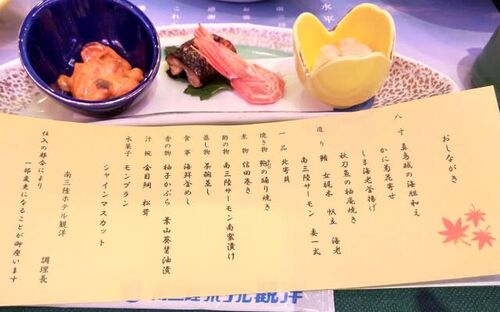 おしながき
八寸 真鳥賊の海胆和え
かに菊花寄せ
しま海老釜揚げ
秋刀魚の柚庵焼き
造り 鮪 女梶木 帆立 海老
南三陸サーモン 妻一式
一品 北寄貝
焼き物 鮑の踊り焼き
煮物 信田巻き
酢の物 南三陸サーモン南蛮漬け
蒸し物 茶碗蒸し
食事 海鮮釜めし
香の物 柚子かぶら 葉山葵醤油漬
汁椀 金目鯛 松茸
水菓子 モンブラン
シャインマスカット
南三陸ホテル観洋 調理長
仕入の都合により
一部変更になることが御座います